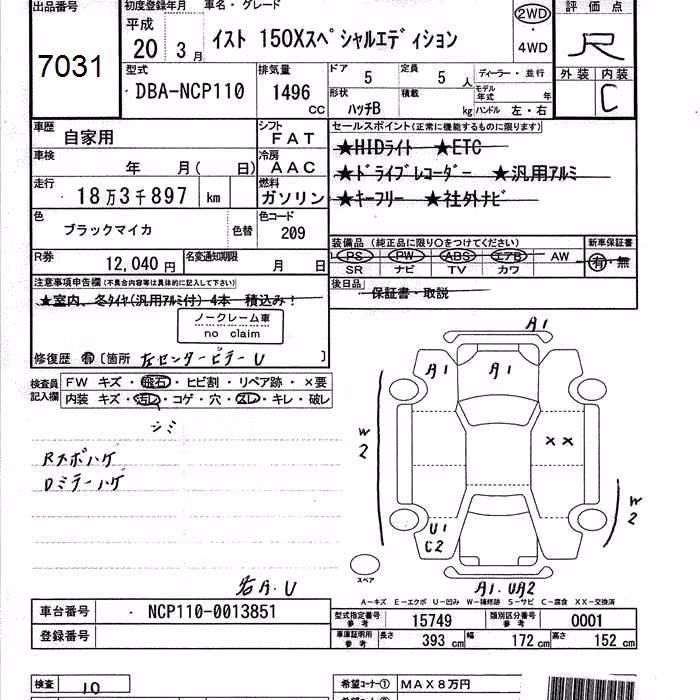 出品番号
7031
初度登録年月
平成
20 3月
車名・グレード
イスト 150Xスペシャルエディション
2WD
・
4WD
評価点
R
外装 内装
C
型式
DBA-NCP110
排気量
1496 cc
ドア 5
定員 5 人
ディーラー・並行
形状 ハッチB
積載 kg
モデル年式 年
ハンドル 左・右
車歴 自家用
シフト FAT
車検 年 月( 日)
冷房 AAC
走行 18万3千897 km
燃料 ガソリン
色 ブラックマイカ
色替
色コード 209
R券 12,040円
名変通知期限 月 日
セールスポイント(正常に機能するものに限ります)
★HIDライト ★ETC
★ドライブレコーダー ★汎用アルミ
★キーフリー ★社外ナビ
装備品 (純正品に限り○をつけてください)
新車保証書
PS PW ABS エアB AW
SR ナビ TV カワ
有・無
後日品 保証書・取説
注意事項申告欄(不具合内容等は具体的に記入して下さい)
★室内、冬タイヤ(汎用アルミ付)4本 積込み!
ノークレーム車
no claim
修復歴 有 〔箇所 左センターピラーU 〕
検査員記入欄
FW キズ・飛石・ヒビ割・リペア跡・×要
内装 キズ・汚レ・コゲ・穴・スレ・キレ・破レ
シミ
Rスポハゲ
Dミラーハゲ
A1
A1
A1
W2
××
W2
U1
C2
スペア
A1.UA2
A-キズ E-エクボ U-凹み W-補修跡 S-サビ C-腐食 XX-交換済
車台番号 NCP110-0013851
登録番号
型式指定番号 参考 15749
類別区分番号 参考 0001
車庫証明用 参考 長さ 393 cm 幅 172 cm 高さ 152 cm
検査 10
希望コーナー① MAX8万円
希望コーナー②